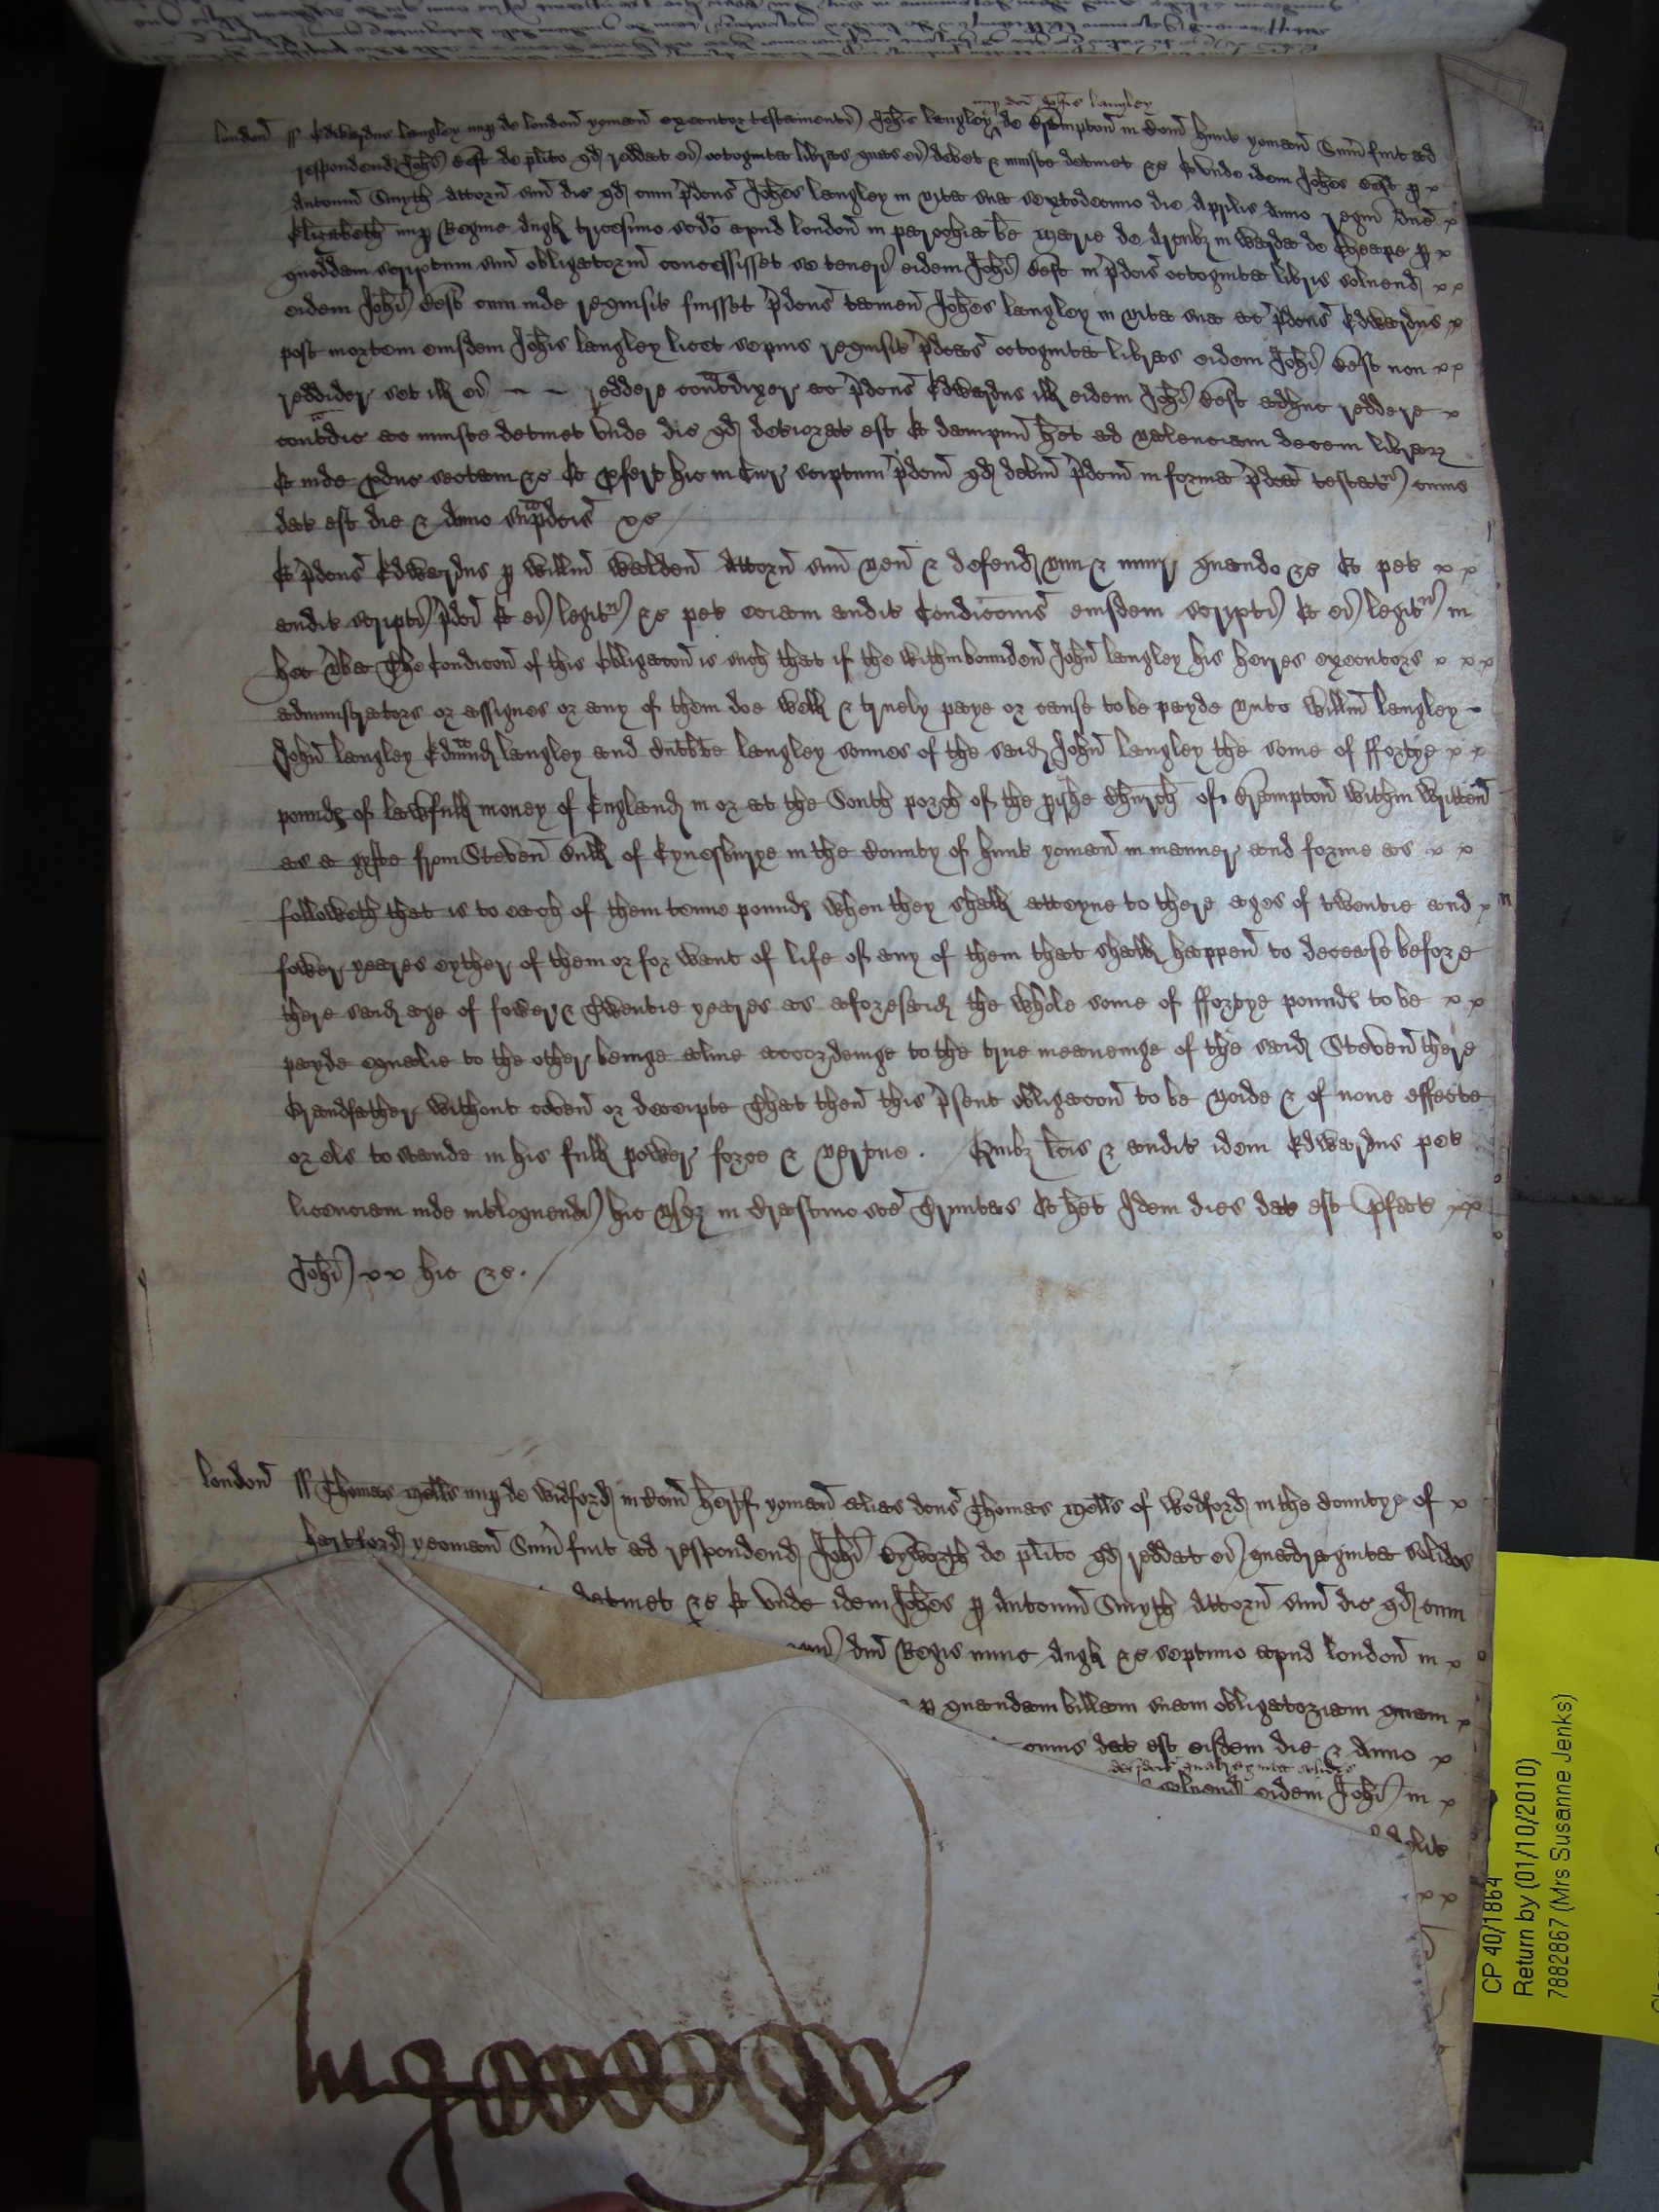 london ss Edwardus langley nup de london yoman executor testamenti Johis langley nup dci Johis langley de Brampton in Com Hunt yoman Sum fuit ad
respondend Johi Best de plito qd reddat ei octoginta libras quas ei debet & iniuste detinet &c Et unde idem Johes Best p
Antonium Smyth Attorn suu dic qd cum pdcus Johes langley in vita sua sextodecimo die Aprilis Anno regni Dne
Elizabeth nup Regine Angl tricesimo scdo apud london in parochia be Marie de Arcubz in Warda de Cheape p
quoddam scriptum suu obligatoriu concessisset se teneri eidem Johi Best in pdcis octoginta libris solvend
eidem Johi Best cum inde requisit fuisset pdcus tamen Johes langley in vita sua ac pdcus Edwardus
post mortem eiusdem Johis langley licet sepius requisit pdcas octoginta libras eidem Johi Best non
reddider set ill ei reddere contradixer ac pdcus Edwardus ill eidem Johi Best adhuc reddere
contradic ac iniuste detinet Unde dic qd deteriorat est Et dampnu het ad valenciam decem librar
Et inde produc sectam &c Et profert hic in Cur scriptum pdcm qd debitu pdcm in forma pdca testat cuius
dat est die & Anno supradcis &c
Et pdcus Edwardus p Willm Walden Attorn suu ven & defend vim & iniur quando &c Et pet
audit scripti pdci Et ei legit &c pet eciam audit Condiconis eiusdem scripti Et ei legit in
hec verba The Condicon of this Obligacon is such that if the withinbounden John langley his heires executors
administrators or assignes or any of them doe well & truely paye or cause to be payde unto Willm langley
John langley Edmund langley and langley sonnes of the said John langley the some of ffortye
pounds of lawfull money of England in or at the South porch of the pishe Church of Brampton within written
as a gyfte from Steven Bull of Eynesburye in the County of Hunt yoman in manner and forme as
followeth that is to each of them tenne pounds when they shall atteyne to there ages of twentie and
fower yeares eyther of them or for want of life of any of them that shall happen to decease before
there said age of fower & Twentie yeares as aforesaid the whole some of ffortye pounds to be
payde equalie to the other beinge alive accordeinge to the true meaneinge of the said Steven there
Grandfather without coven or deceipte That then this psent obligacon to be voide & of none effecte
or els to stande in his full power force & vertue. Quibz lcis & audit idem Edwardus pet
licenciam inde interloquendi hic usqz in Crastino sce Trinitatis Et het Idem dies dat est pfato
Johi hic &c.
london ss Thomas Mells nup de Widford in Com Hertf yoman alias dcus Thomas Mells of Wodford in the Countye of
hertford yeoman Sum fuit ad respondend Johi Eyworth de plito qd reddat ei quadraginta solidos
detinet &c Et unde idem Johes p Antoniu Smyth Attorn suu dic qd cum
dni Regis nunc Angl &c septimo apud london in
p quandam billam suam obligatoriam quam
cuius dat est eisdem die & Anno
quadraginta solidis
solvend eidem Johi in
CP 40/1864
Return by (01/10/2010)
7882867 (Mrs Susanne Jenks)